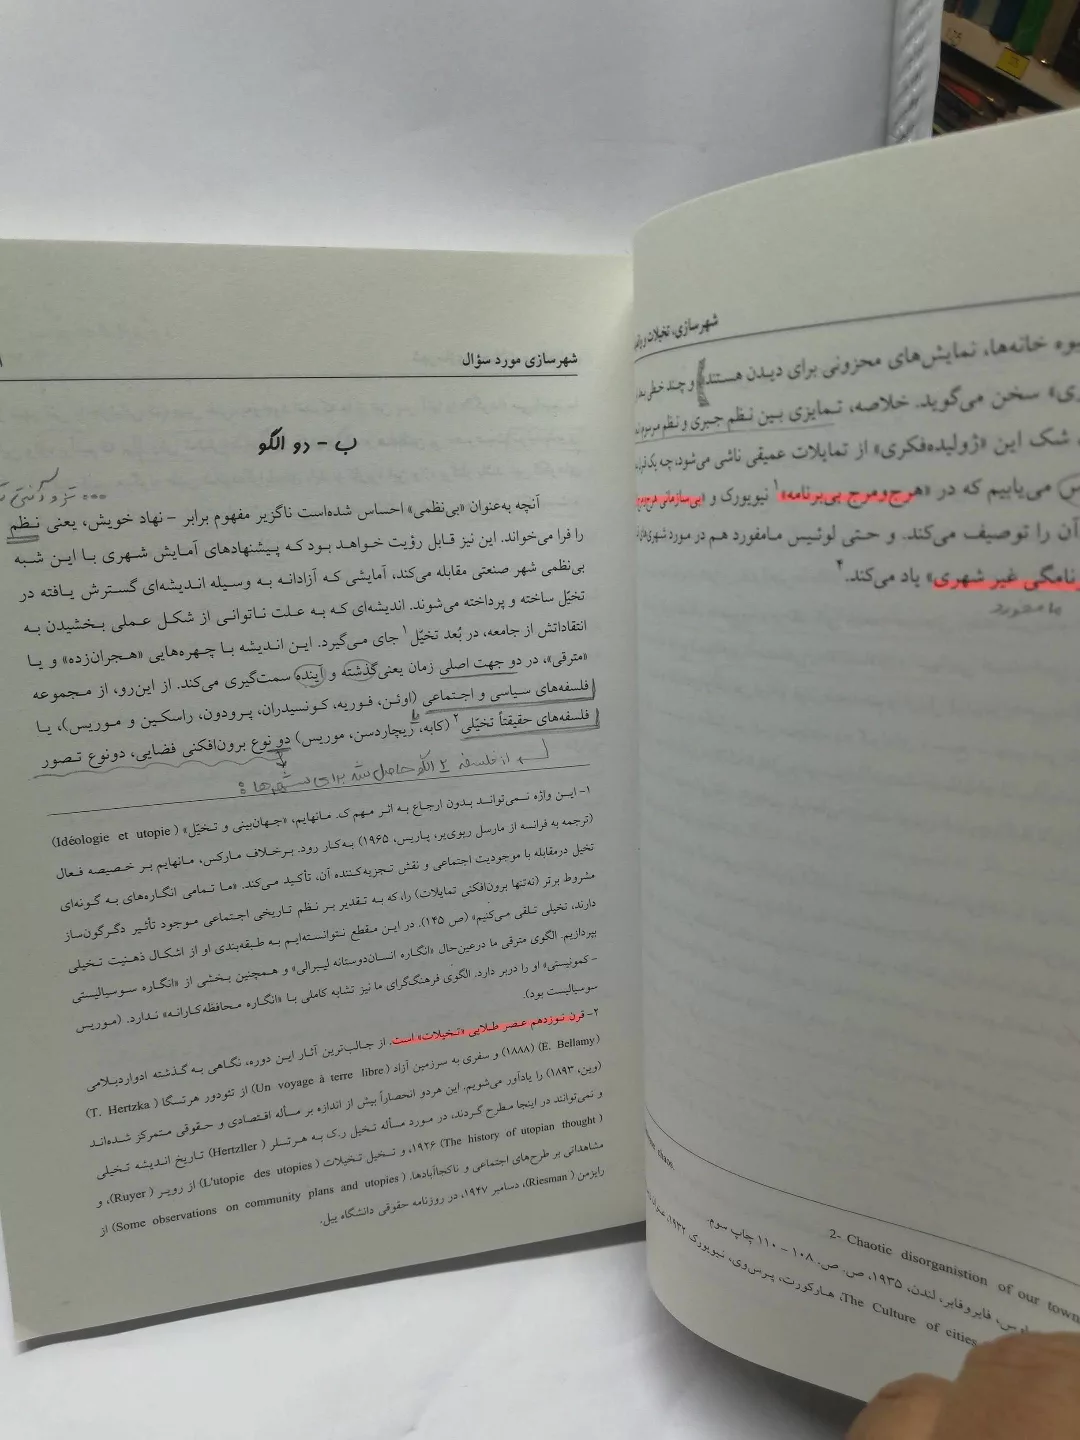 شهرسازی، تخیلات و
یوه خانه‌ها، نمایش‌های محزونی برای دیدن هستند) و چند خطی
ری» سخن می‌گوید. خلاصه، تمایزی بین نظم جبری و نظم مرسوم
شک این «ژولیده‌فکری» از تمایلات عمیقی ناشی می‌شود، چه یک
س می‌یابیم که در «هرج‌ومرج بی‌برنامه»۱ نیویورک و «بی‌سازمانی
آن را توصیف می‌کند. و حتی لوئیس مامفورد هم در مورد شهرهای
رنامگی غیر شهری» یاد می‌کند.۴
مامفورد
chaos
2- Chaotic disorganistion of our town
فابر وفابر، لندن، ۱۹۳۵، ص. ص. ۱۰۸ - ۱۱۰ چاپ سوم.
The Culture of cities، هارکورت، پرس‌وی، نیویورک ۱۹۳۲
شهرسازی مورد سؤال
ب - دو الگو
آنچه به‌عنوان «بی‌نظمی» احساس شده‌است ناگزیر مفهوم برابر -نهاد خویش، یعنی نظم
را فرا می‌خواند. این نیز قابل رؤیت خواهد بود که پیشنهادهای آمایش شهری با این شبه
بی‌نظمی شهر صنعتی مقابله می‌کند، آمایشی که آزادانه به وسیله اندیشه‌ای گسترش یافته در
تخیّل ساخته و پرداخته می‌شوند. اندیشه‌ای که به علت ناتوانی از شکل عملی بخشیدن به
انتقاداتش از جامعه، در بُعد تخیّل۱ جای می‌گیرد. این اندیشه با چهره‌هایی «هجران‌زده» و یا
«مترقی»، در دو جهت اصلی زمان یعنی گذشته و آینده سمت‌گیری می‌کند. از این‌رو، از مجموعه
فلسفه‌های سیاسی و اجتماعی (اوئن، فوریه، کونسیدران، پرودون، راسکین و موریس)، یا
فلسفه‌های حقیقتاً تخیّلی۲ (کابه، ریچاردسن، موریس) دو نوع برون‌افکنی فضایی، دونوع تصور
از فلسفه ۲ الگو حاصل شد برای شهرها :
۱- این واژه نمی‌تواند بدون ارجاع به اثر مهم ک. مانهایم، «جهان‌بینی و تخیّل» (Idéologie et utopie)
(ترجمه به فرانسه از مارسل ریوی‌یر، پاریس، ۱۹۶۵) به‌کار رود. برخلاف مارکس، مانهایم بر خصیصه فعال
تخیل درمقابله با موجودیت اجتماعی و نقش تجزیه‌کننده آن، تأکید می‌کند. «ما تمامی انگاره‌های به گونه‌ای
مشروط برتر (نه‌تنها برون‌افکنی تمایلات) را، که به تقدیر بر نظم تاریخی اجتماعی موجود تأثیر دگرگون‌ساز
دارند، تخیلی تلقی می‌کنیم» (ص ۱۴۵). در این مقطع نتوانسته‌ایم به طبقه‌بندی او از اشکال ذهنیت تخیلی
بپردازیم. الگوی مترقی ما درعین‌حال «انگاره انسان‌دوستانه لیبرالی» و همچنین بخشی از «انگاره سوسیالیستی
-کمونیستی» او را دربر دارد. الگوی فرهنگ‌گرای ما نیز تشابه کاملی با «انگاره محافظه‌کارانه» ندارد. (موریس
سوسیالیست بود).
۲- قرن نوزدهم عصر طلایی «تخیلات» است. از جالب‌ترین آثار این دوره، نگاهی به گذشته ادواردبلامی
(E. Bellamy) (۱۸۸۸) و سفری به سرزمین آزاد (Un voyage à terre libre) از تئودور هرتسگا (T. Hertzka)
(وین، ۱۸۹۳) را یادآور می‌شویم. این هردو انحصاراً بیش از اندازه بر مسأله اقتصادی و حقوقی متمرکز شده‌اند
و نمی‌توانند در اینجا مطرح گردند، در مورد مسأله تخیل ر.ک به هرتسلر (Hertzller) تاریخ اندیشه تخیلی
(The history of utopian thought) ۱۹۲۶، و تخیل تخیلات (L'utopie des utopies) از رویر (Ruyer)، و
مشاهداتی بر طرح‌های اجتماعی و ناکجاآبادها. (Some observations on community plans and utopies) از
رایزمن (Riesman)، دسامبر ۱۹۴۷، در روزنامه حقوقی دانشگاه ییل.